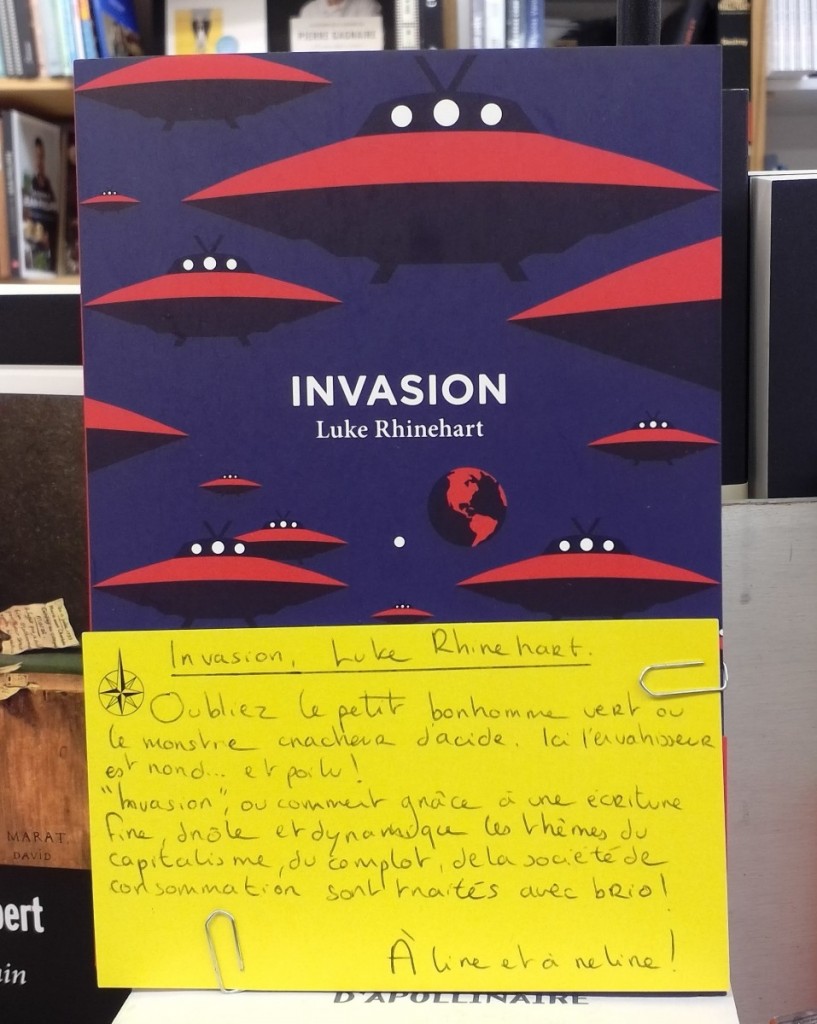 PIERRE GAGNAIRE
INVASION
Luke Rhinehart
Invasion, Luke Rhinehart.
Oubliez le petit bonhomme vert ou
le monstre cracheur d'acide. Ici l'envahisseur
est rond... et poilu!
"Invasion", ou comment grâce à une écriture
fine, drôle et dynamique les thèmes du
capitalisme, du complot, de la société de
consommation sont traités avec brio!
À lire et à relire!
MARAT.
DAVID
pert
in
D'APOLLINAIRE